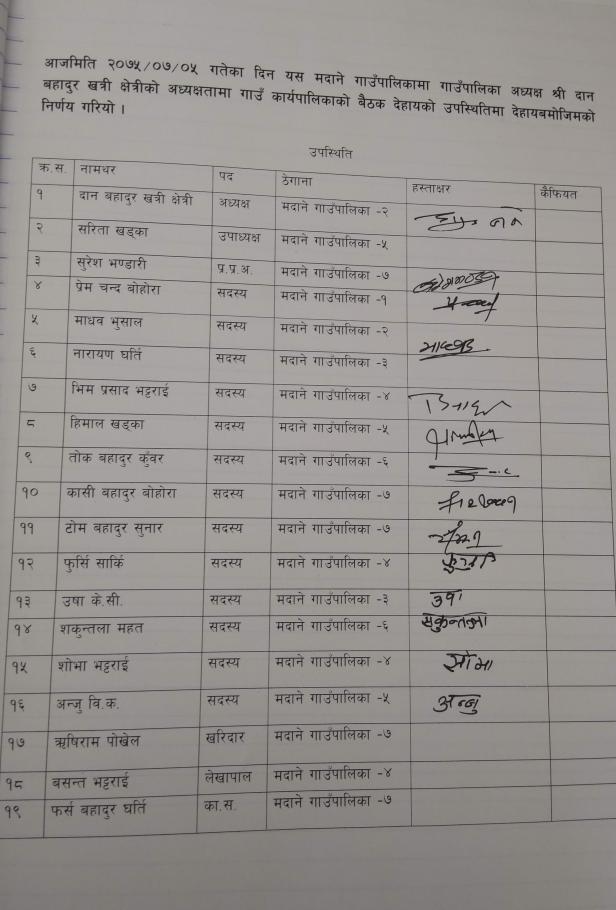 आजमिति २०७५/०७/०५ गतेका दिन यस मदाने गाउँपालिकामा गाउँपालिका अध्यक्ष श्री दान
बहादुर खत्री क्षेत्रीको अध्यक्षतामा गाउँ कार्यपालिकाको बैठक देहायको उपस्थितिमा देहायबमोजिमको
निर्णय गरियो ।
उपस्थिति
क्र.स. नामथर पद ठेगाना हस्ताक्षर कैफियत
१ दान बहादुर खत्री क्षेत्री अध्यक्ष मदाने गाउँपालिका -२
२ सरिता खड्का उपाध्यक्ष मदाने गाउँपालिका -५
३ सुरेश भण्डारी प्र.प्र.अ. मदाने गाउँपालिका -७
४ प्रेम चन्द बोहोरा सदस्य मदाने गाउँपालिका -१
५ माधव भुसाल सदस्य मदाने गाउँपालिका -२
६ नारायण घर्ति सदस्य मदाने गाउँपालिका -३
७ भिम प्रसाद भट्टराई सदस्य मदाने गाउँपालिका -४
८ हिमाल खड्का सदस्य मदाने गाउँपालिका -५
९ तोक बहादुर कुँवर सदस्य मदाने गाउँपालिका -६
१० कासी बहादुर बोहोरा सदस्य मदाने गाउँपालिका -७
११ टोम बहादुर सुनार सदस्य मदाने गाउँपालिका -७
१२ फुर्सि सार्कि सदस्य मदाने गाउँपालिका -४
१३ उषा के.सी. सदस्य मदाने गाउँपालिका -३ उषा
१४ शकुन्तला महत सदस्य मदाने गाउँपालिका -६
१५ शोभा भट्टराई सदस्य मदाने गाउँपालिका -४
१६ अन्जु वि.क. सदस्य मदाने गाउँपालिका -५ अन्जु
१७ ऋषिराम पोखेल खरिदार मदाने गाउँपालिका -७
१८ बसन्त भट्टराई लेखापाल मदाने गाउँपालिका -४
१९ फर्स बहादुर घर्ति का.स. मदाने गाउँपालिका -७